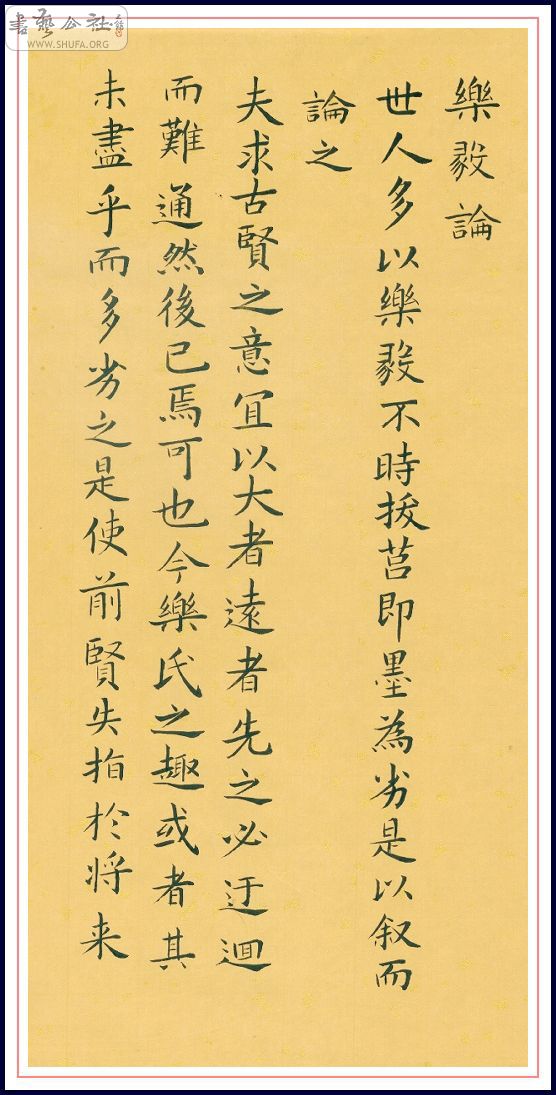 書藝公社
WWW.SHUFA.ORG
樂毅論
世人多以樂毅不時拔莒即墨為劣是以叙而
論之
夫求古賢之意宜以大者遠者先之必迂迴
而難通然後已焉可也今樂氏之趣或者其
未盡乎而多劣之是使前賢失指於将来